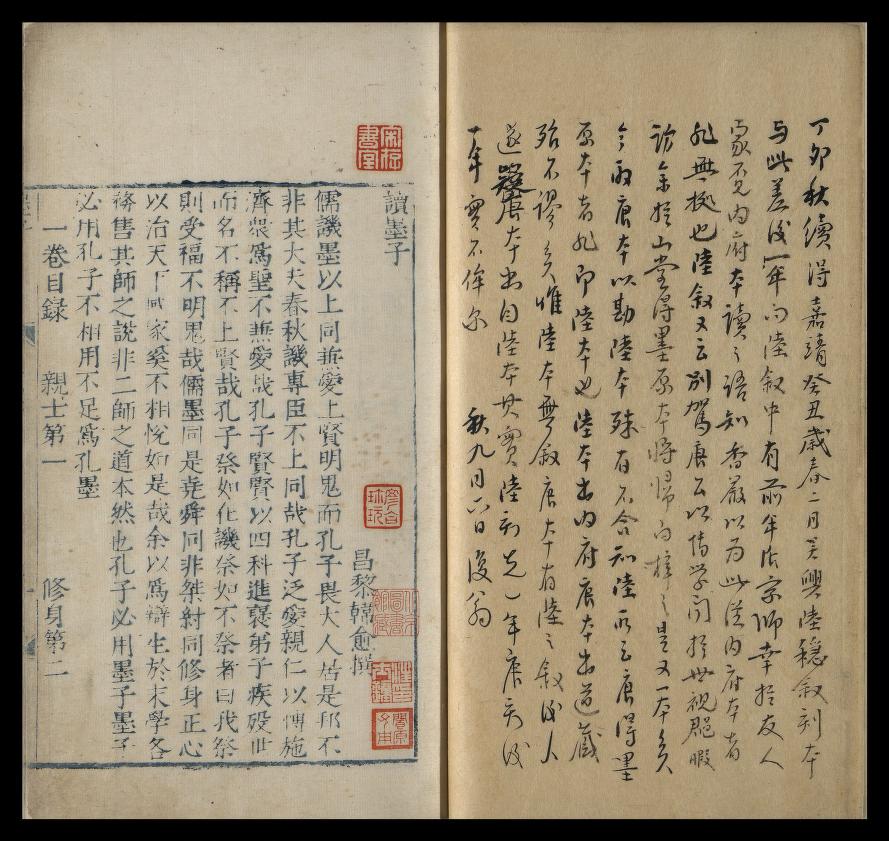 丁卯秋續得嘉靖癸丑歲春二月吳興陸穩敘刻本
与此差後一年而陸敘中有前年居京師幸於友人
家覓內府本讀之語知香嚴以為此從內府本者
非無據也陸敘又云別駕唐公以博學聞於世視郡暇
訪余於山堂得墨原本將歸而梓之是又一本矣
今取唐本以勘陸本殊有不合知陸所云唐得墨
原本者非即陸本也陸本出內府唐本出道藏
殆不謬矣惟陸本無敘唐本有陸之敘後人
遂疑唐本出自陸本其實陸刻先一年唐刻後
一年實不侔尔 秋九月六日復翁
讀墨子
昌黎韓愈撰
儒譏墨以上同兼愛上賢明鬼而孔子畏大人居是邦不
非其大夫春秋譏專臣不上同哉孔子泛愛親仁以博施
濟眾為聖不兼愛哉孔子賢賢以四科進褒弟子疾歿世
而名不稱不上賢哉孔子祭如在譏祭如不祭者曰我祭
則受福不明鬼哉儒墨同是堯舜同非桀紂同修身正心
以治天下國家奚不相悅如是哉余以為辯生於末學各
務售其師之說非二師之道本然也孔子必用墨子墨子
必用孔子不相用不足為孔墨
一卷目錄 親士第一 修身第二